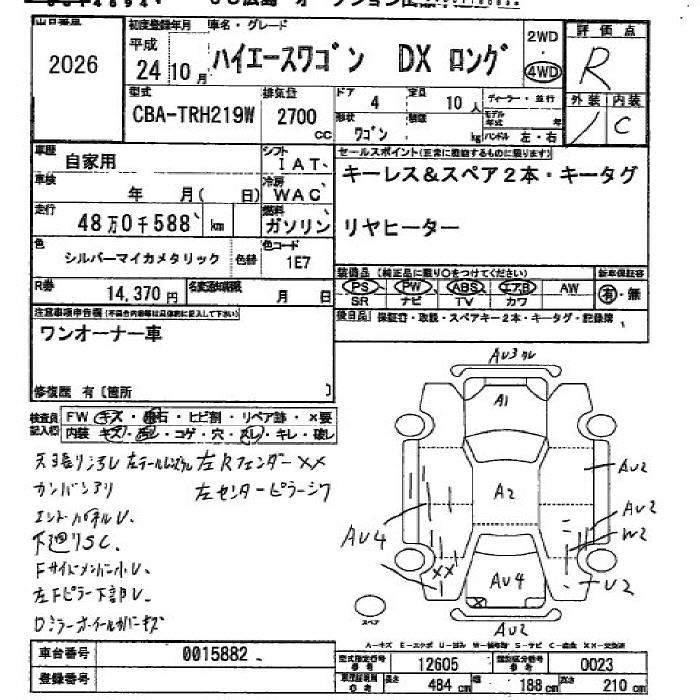 2026
初度登録年月
車名・グレード
平成
24 10 月
ハイエースワゴン DX ロング
2WD
4WD
評価点
R
外装 内装
C
型式
CBA-TRH219W
排気量
2700 cc
ドア 4
定員 10 人
ディーラー・並行
形状
ワゴン
kg
モデル年式 年
ハンドル 左・右
車歴
自家用
シフト
IAT
車検
年 月( 日)
冷房
WAC
走行
48万0千588 km
燃料
ガソリン
色
シルバーマイカメタリック
色替
色コード
1E7
R券
14,370 円
名変通知期限
月 日
セールスポイント(正常に機能するものに限ります)
キーレス&スペア2本・キータグ
リヤヒーター
装備品(純正品に限り○をつけてください)
新車保証書
PS PW ABS エアB AW
有・無
SR ナビ TV カワ
後日品 保証書・取説・スペアキー2本・キータグ・記録簿
注意事項申告欄(不具合内容等は具体的に記入して下さい)
ワンオーナー車
修復歴 有〔箇所 〕
検査員
記入欄
FW キズ・飛石・ヒビ割・リペア跡・×要
内装 キズ・汚レ・コゲ・穴・スレ・キレ・破レ
左Rフェンダー××
カンバンアリ
左センターピラーシワ
エンドパネルU.
下廻りSC.
FサイドメンバーハU.
左Fピラー下部U.
Dミラーホイールカバーキズ
AU3
A1
A2
AU2
AU2
W2
AU4
××
AU4
U2
AU2
スペア
A-キズ E-エクボ U-凹み W-補修跡 S-サビ C-腐食 ××-交換済
車台番号
0015882
登録番号
型式指定番号
参考
12605
類別区分番号
参考
0023
車両証明用
参考
長さ 484 cm
幅 188 cm
高さ 210 cm